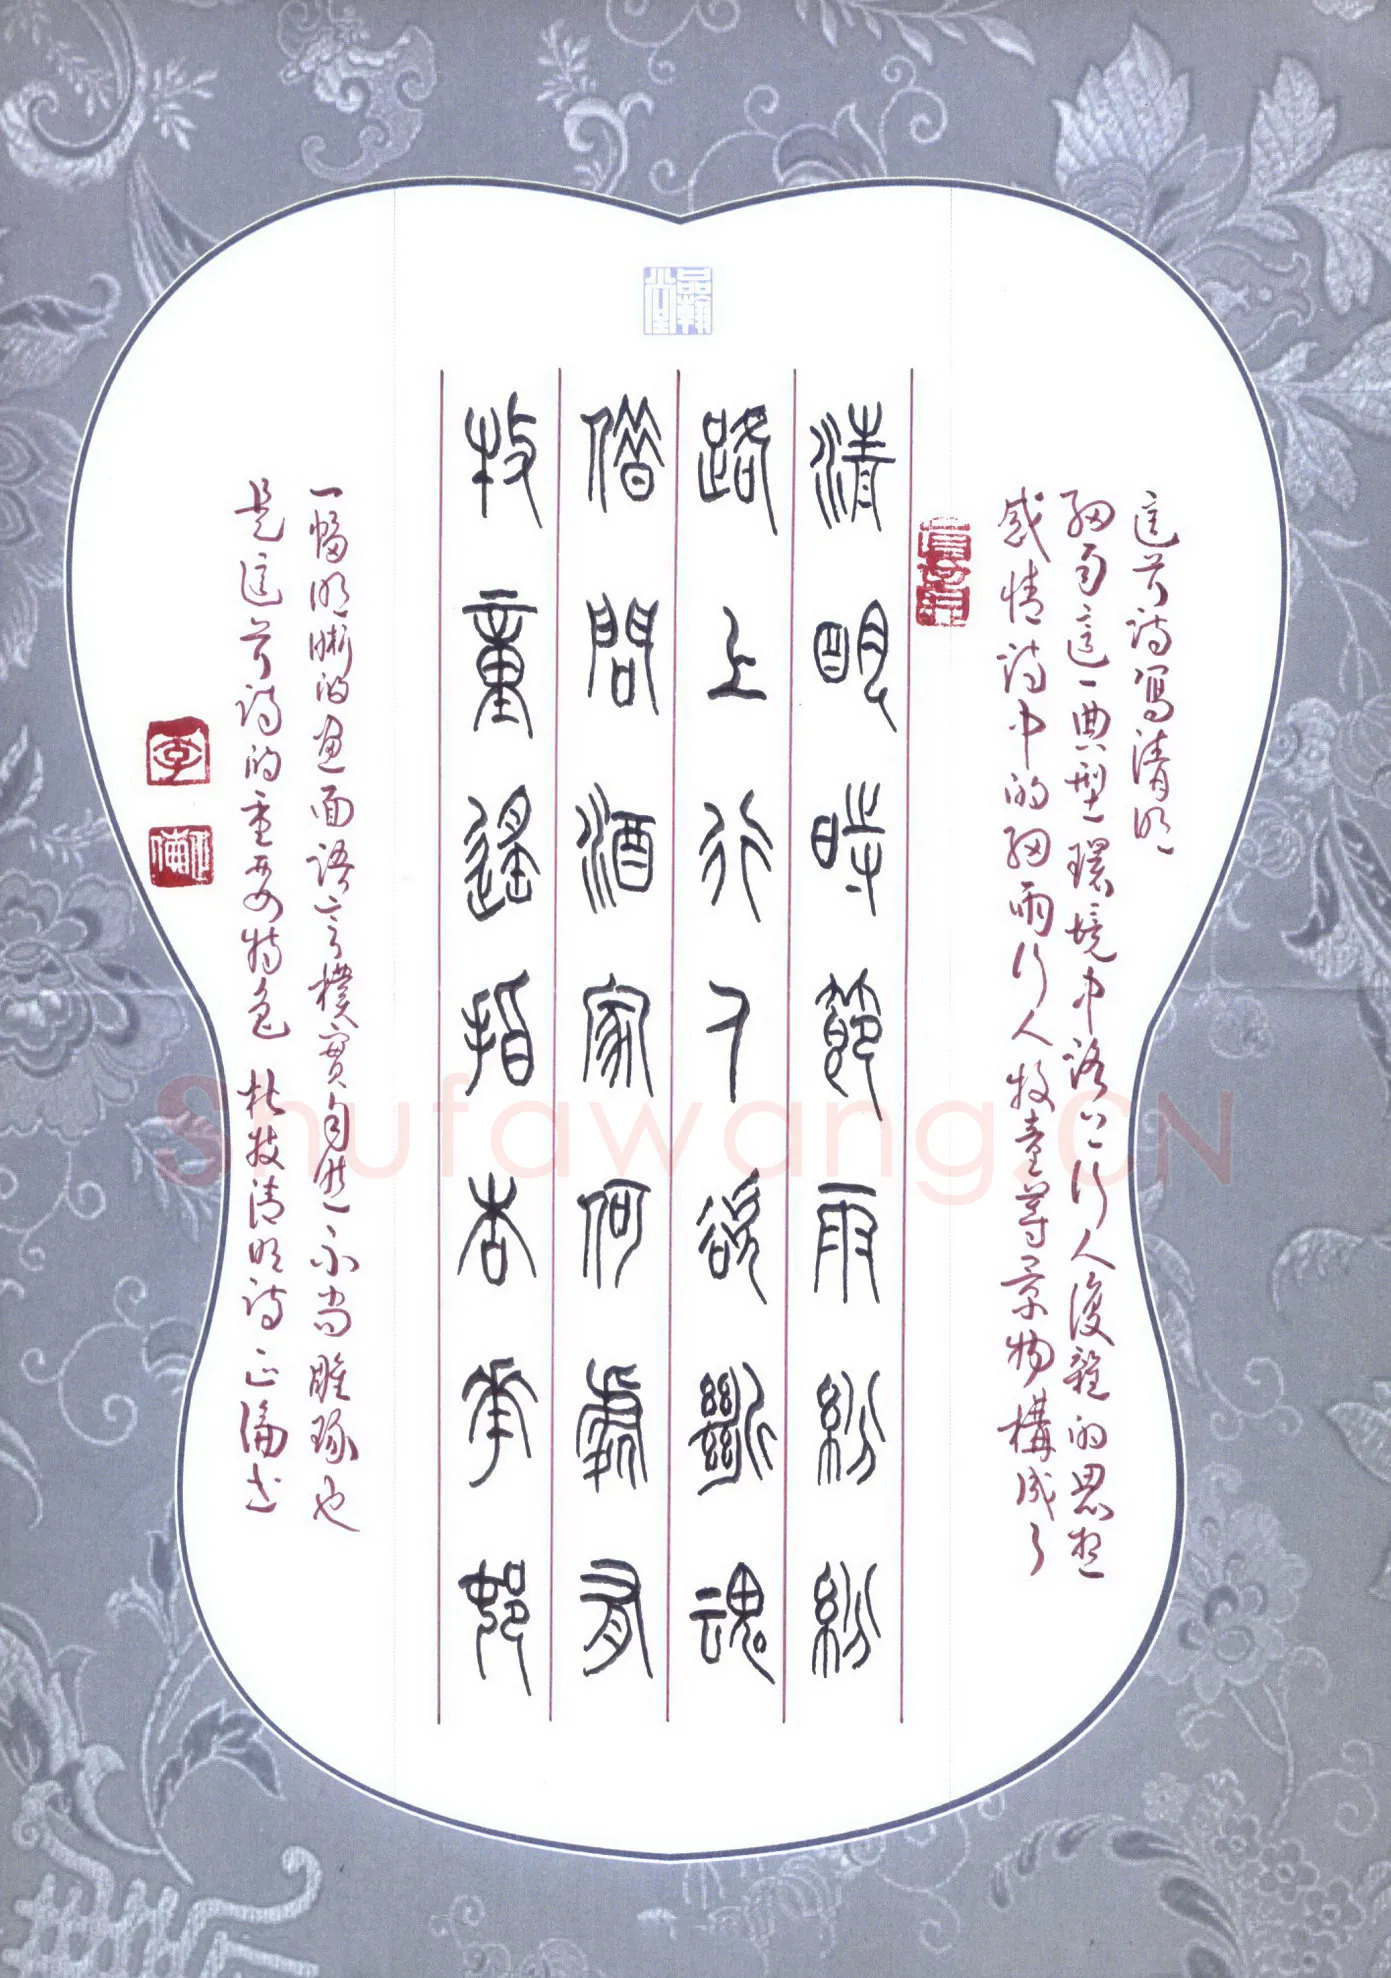 品翰堂
這首詩寫清明
細雨這一典型環境中路上行人復雜的思想
感情詩中的細雨行人牧童等景物構成了
清明時節雨紛紛
路上行人欲斷魂
借問酒家何處有
牧童遙指杏花邨
一幅明晰的畫面語言樸實自然不尚雕琢也
是這首詩的重要特色 杜牧清明詩 正倫書
李
Shufawang.CN